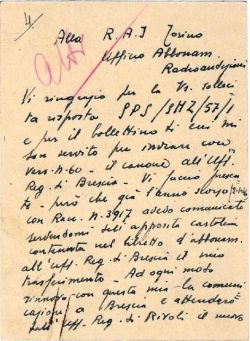 4.
Alla R.A.I Torino
Ufficio Abbonam.
Radioaudizioni
Vi ringrazio per la Vs. solleci
ta risposta SPS/SHZ/57/1
e per il bollettino di cui mi
son servito per inviare così
Vers. N. 60 - il canone all'Uff.
Reg. di Brescia - Vi faccio presen
te - però che già l'anno scorso
con Racc. N. 3917 avevo comunicato
servendomi dell'apposita cartolina
contenuta nel libretto d'abbonam.
all'Uff. Reg. di Brescia il mio
trasferimento - Ad ogni modo
rinnovo con questa mia la comuni
cazione a Brescia e attenderò
dall'Uff. Reg. di Rivoli il nuovo